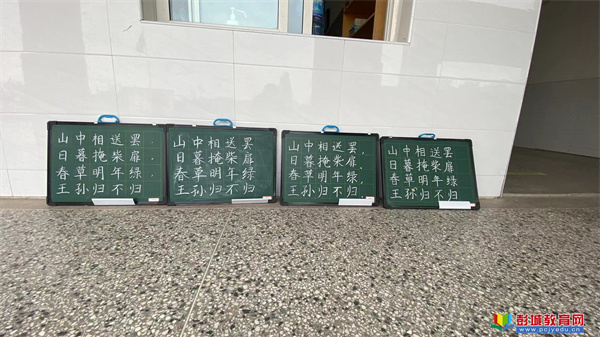 山中相送罢
日暮掩柴扉
春草明年绿
王孙归不归
山中相送罢
日暮掩柴扉
春草明年绿
王孙归不归
山中相送罢
日暮掩柴扉
春草明年绿
王孙归不归
山中相送罢
日暮掩柴扉
春草明年绿
王孙归不归
彭城教育网
www.pcjyedu.cn